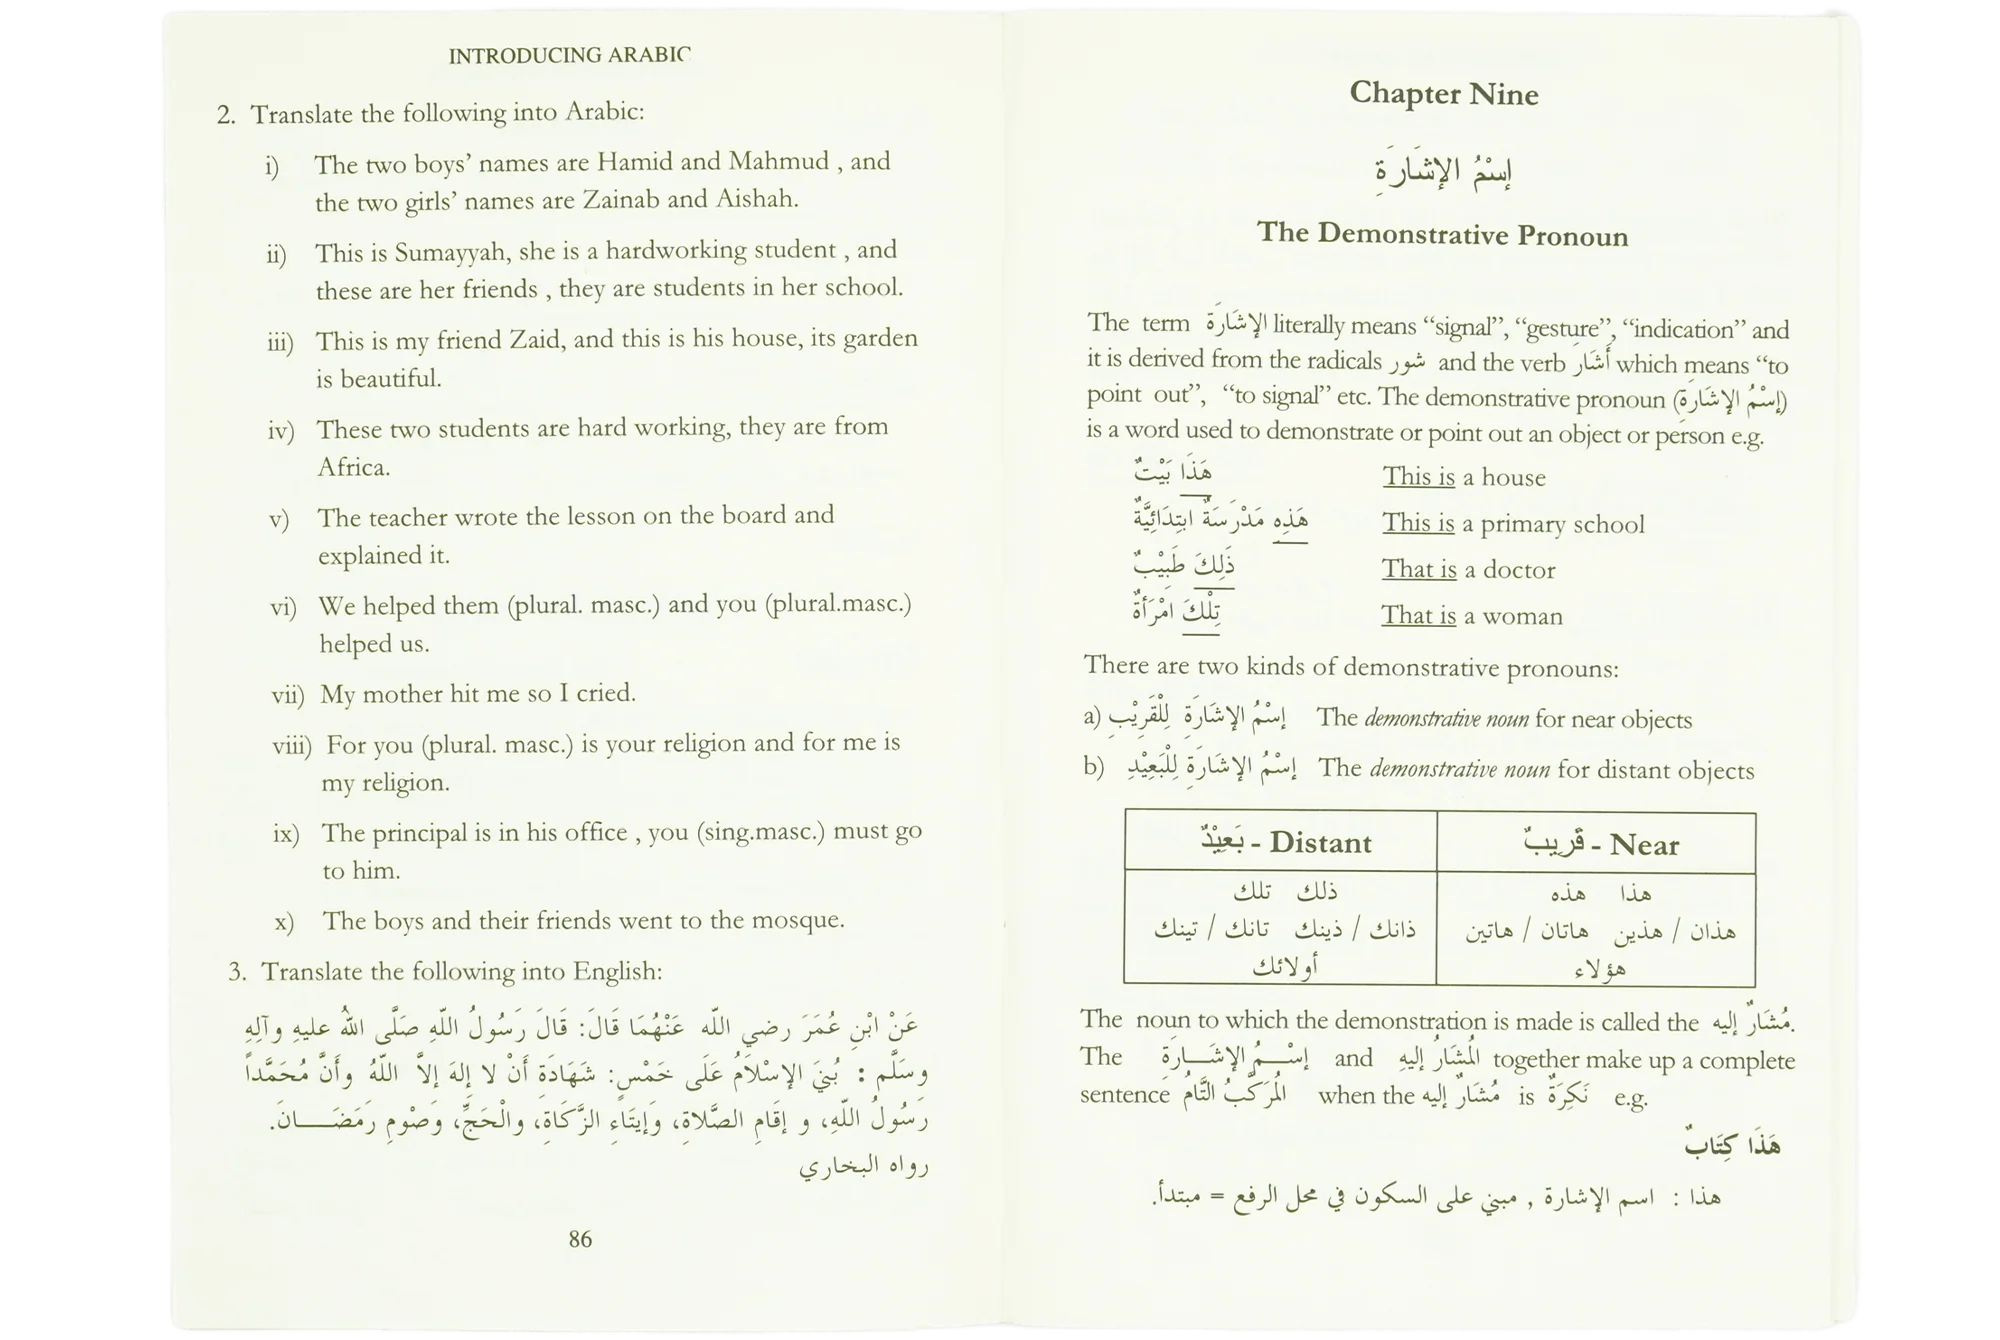 INTRODUCING ARABIC
2. Translate the following into Arabic:
i) The two boys’ names are Hamid and Mahmud , and
the two girls’ names are Zainab and Aishah.
ii) This is Sumayyah, she is a hardworking student , and
these are her friends , they are students in her school.
iii) This is my friend Zaid, and this is his house, its garden
is beautiful.
iv) These two students are hard working, they are from
Africa.
v) The teacher wrote the lesson on the board and
explained it.
vi) We helped them (plural. masc.) and you (plural.masc.)
helped us.
vii) My mother hit me so I cried.
viii) For you (plural. masc.) is your religion and for me is
my religion.
ix) The principal is in his office , you (sing.masc.) must go
to him.
x) The boys and their friends went to the mosque.
3. Translate the following into English:
عَنْ ابْنِ عُمَرَ رضي اللّه عَنْهُمَا قَالَ: قَالَ رَسُولُ اللّهِ صَلَّى اللهُ عليهِ وآلِهِ
وسَلَّم : بُنِيَ الإسْلَامُ عَلَى خَمْسٍ: شَهَادَةِ أَنْ لا إلهَ إلاَّ اللّهُ وأَنَّ مُحَمَّداً
رَسُولُ اللّهِ، و إقَامِ الصَّلاةِ، وَإيتَاءِ الزَّكَاةِ، والْحَجِّ، وَصَوْمِ رَمَضَــــانَ.
رواه البخاري
86
Chapter Nine
إسْمُ الإشَارَةِ
The Demonstrative Pronoun
The term الإشَارَة literally means “signal”, “gesture”, “indication” and
it is derived from the radicals شور and the verb أَشَار which means “to
point out”, “to signal” etc. The demonstrative pronoun (إسْمُ الإشَارَةِ)
is a word used to demonstrate or point out an object or person e.g.
هَذَا بَيْتٌ This is a house
هَذِهِ مَدْرَسَةٌ ابتِدَائِيَّةٌ This is a primary school
ذَلِكَ طَبِيْبٌ That is a doctor
تِلْكَ امْرَأةٌ That is a woman
There are two kinds of demonstrative pronouns:
a) إسْمُ الإشَارَةِ لِلْقَرِيْبِ The demonstrative noun for near objects
b) إسْمُ الإشَارَةِ لِلْبَعِيْدِ The demonstrative noun for distant objects
بَعِيْدٌ - Distant قَرِيبٌ - Near
ذلك تلك هذا هذه
ذانك / ذينك تانك / تينك هذان / هذين هاتان / هاتين
أولائك هؤلاء
The noun to which the demonstration is made is called the مُشَارٌ إليه.
The إسْـــمُ الإشَـــارَةِ and المُشَارُ إليهِ together make up a complete
sentence المُرَكَّبُ التَّامُ when the مُشَارٌ إليه is نَكِرَةٌ e.g.
هَذَا كِتَابٌ
هذا : اسم الإشارة , مبني على السكون في محل الرفع = مبتدأ.